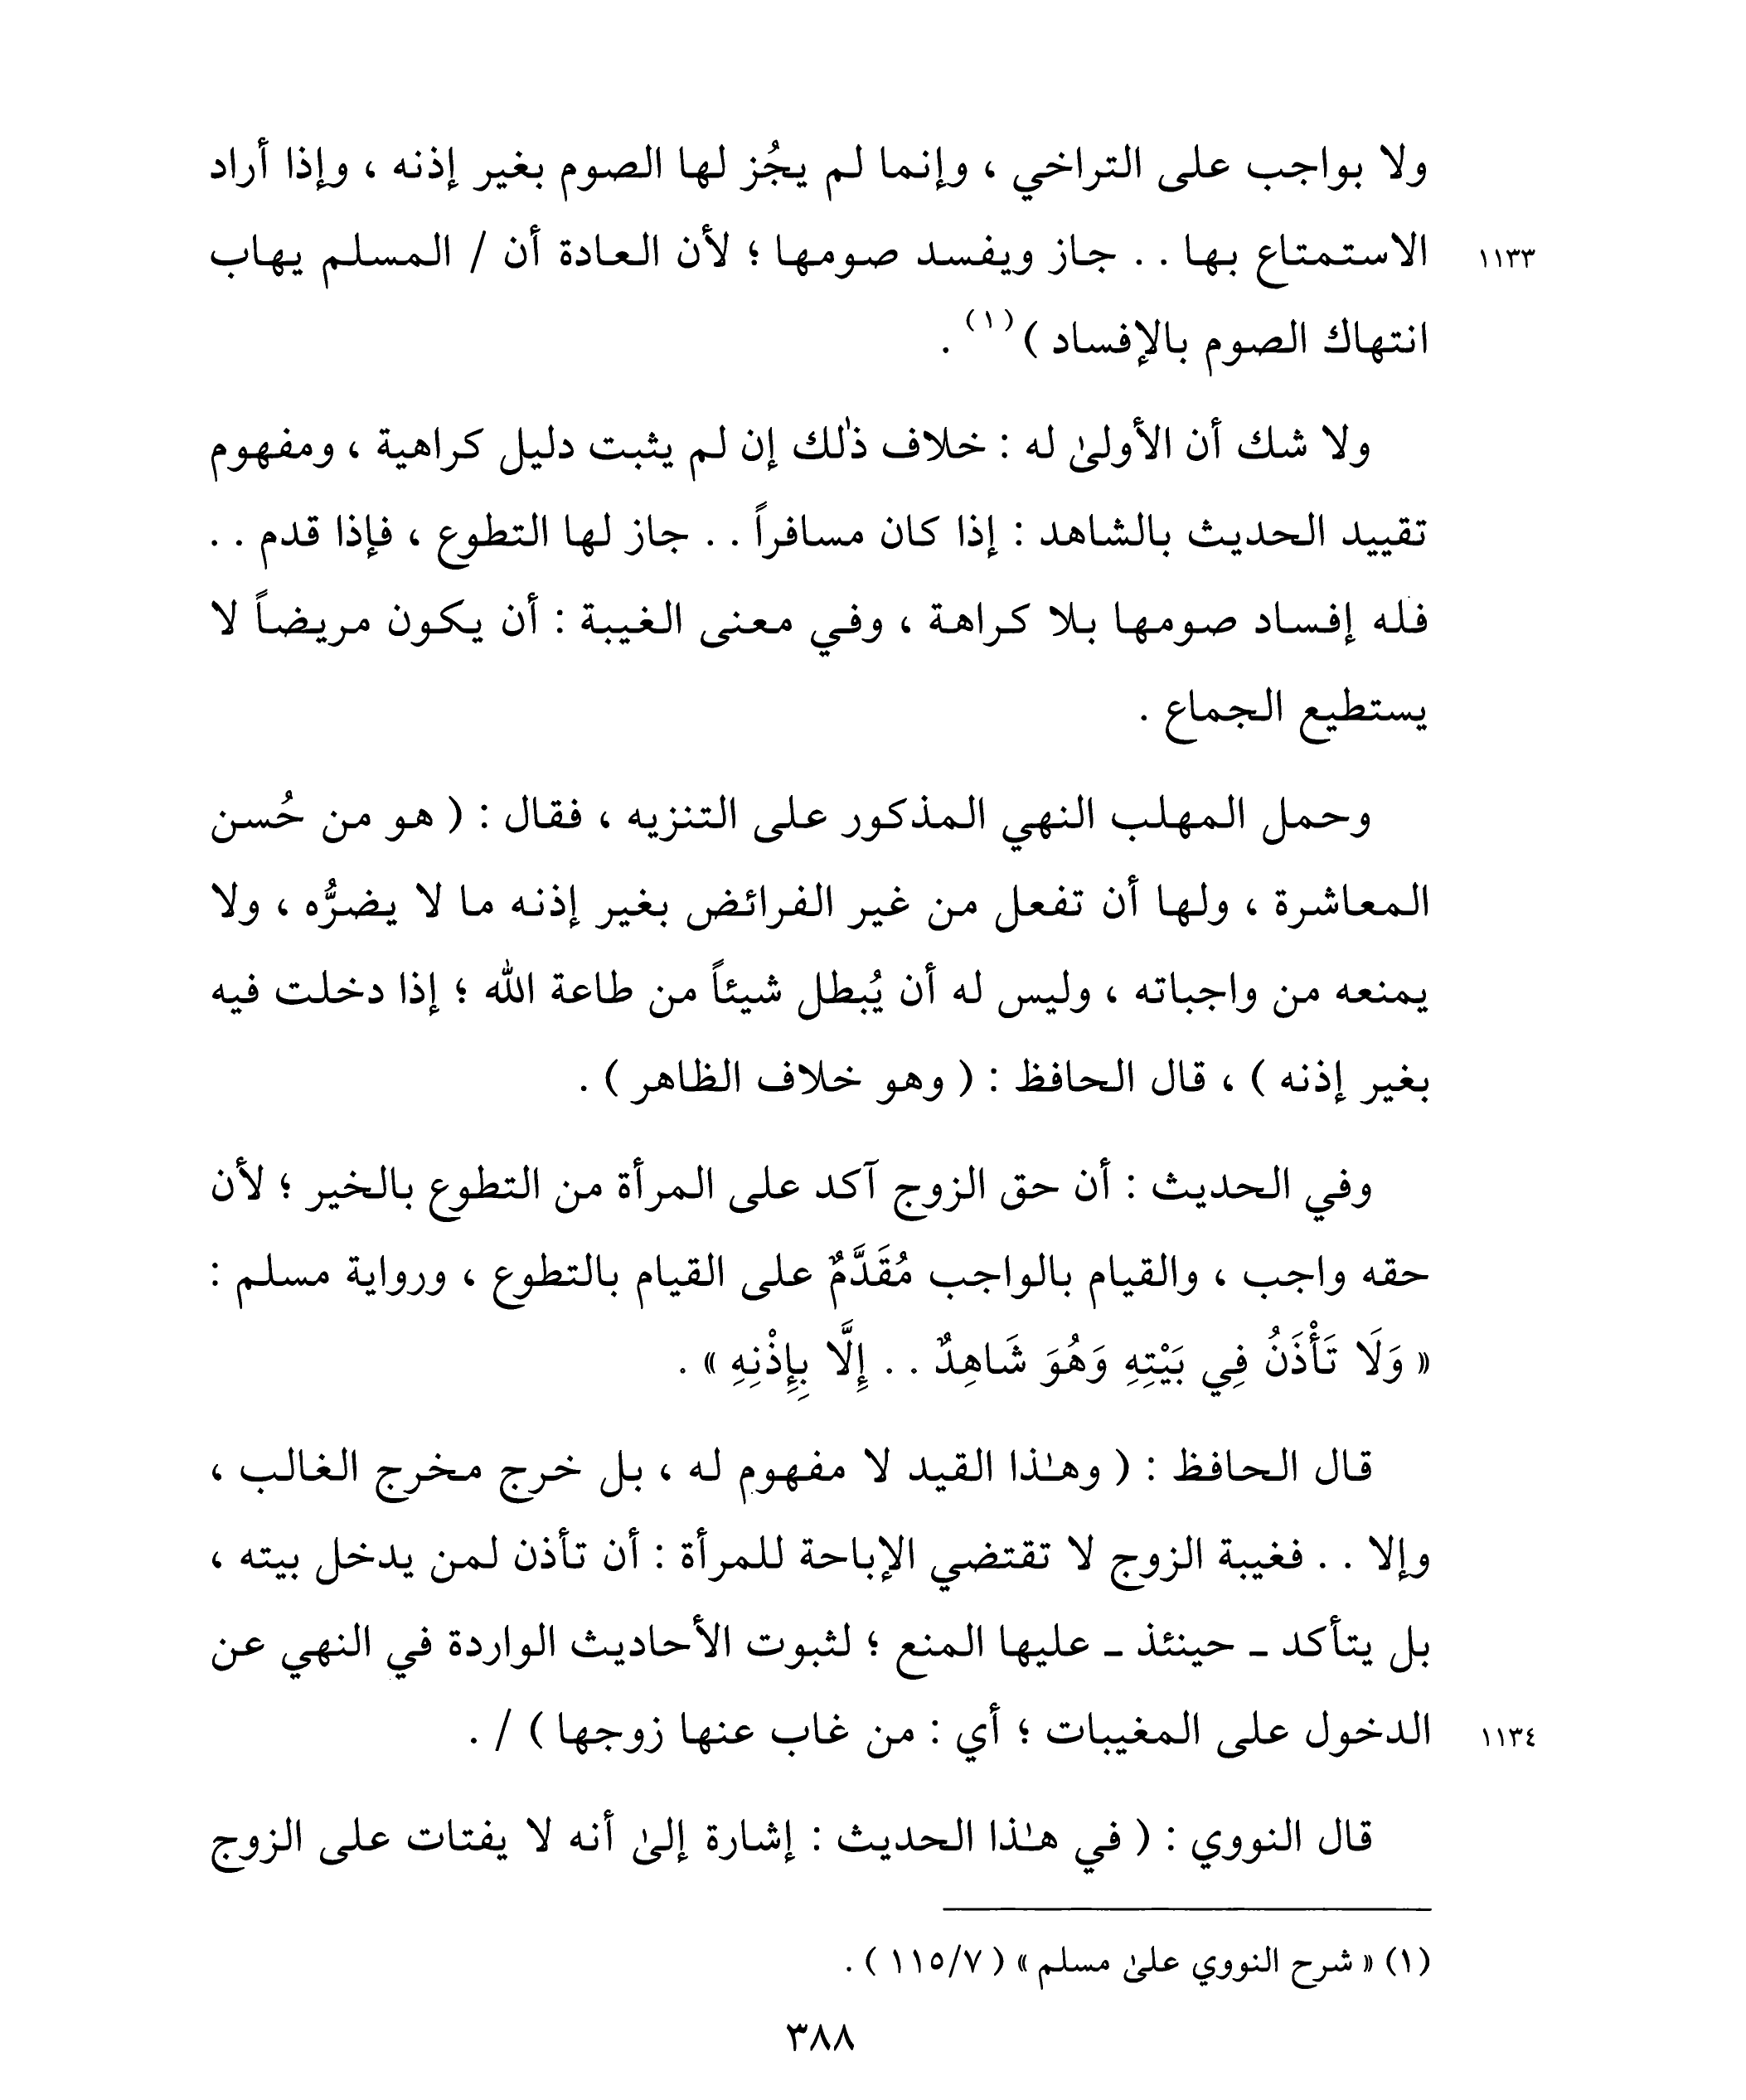 ولا بواجب على التراخي ، وإنما لم يجُز لها الصوم بغير إذنه ، وإذا أراد
١١٣٣ الاستمتاع بها . . جاز ويفسد صومها ؛ لأن العادة أن / المسلم يهاب
انتهاك الصوم بالإفساد )(١) .
ولا شك أن الأولىٰ له : خلاف ذٰلك إن لم يثبت دليل كراهية ، ومفهوم
تقييد الحديث بالشاهد : إذا كان مسافراً . . جاز لها التطوع ، فإذا قدم . .
فله إفساد صومها بلا كراهة ، وفي معنى الغيبة : أن يكون مريضاً لا
يستطيع الجماع .
وحمل المهلب النهي المذكور على التنزيه ، فقال : ( هو من حُسن
المعاشرة ، ولها أن تفعل من غير الفرائض بغير إذنه ما لا يضرُّه ، ولا
يمنعه من واجباته ، وليس له أن يُبطل شيئاً من طاعة الله ؛ إذا دخلت فيه
بغير إذنه ) ، قال الحافظ : ( وهو خلاف الظاهر ) .
وفي الحديث : أن حق الزوج آكد على المرأة من التطوع بالخير ؛ لأن
حقه واجب ، والقيام بالواجب مُقَدَّمٌ على القيام بالتطوع ، ورواية مسلم :
« وَلَا تَأْذَنُ فِي بَيْتِهِ وَهُوَ شَاهِدٌ . . إِلَّا بِإِذْنِهِ » .
قال الحافظ : ( وهـٰذا القيد لا مفهوم له ، بل خرج مخرج الغالب ،
وإلا . . فغيبة الزوج لا تقتضي الإباحة للمرأة : أن تأذن لمن يدخل بيته ،
بل يتأكد ـ حينئذ ـ عليها المنع ؛ لثبوت الأحاديث الواردة في النهي عن
١١٣٤ الدخول على المغيبات ؛ أي : من غاب عنها زوجها ) / .
قال النووي : ( في هـٰذا الحديث : إشارة إلىٰ أنه لا يفتات على الزوج
(١) « شرح النووي علىٰ مسلم » ( ١١٥/٧ ) .
٣٨٨